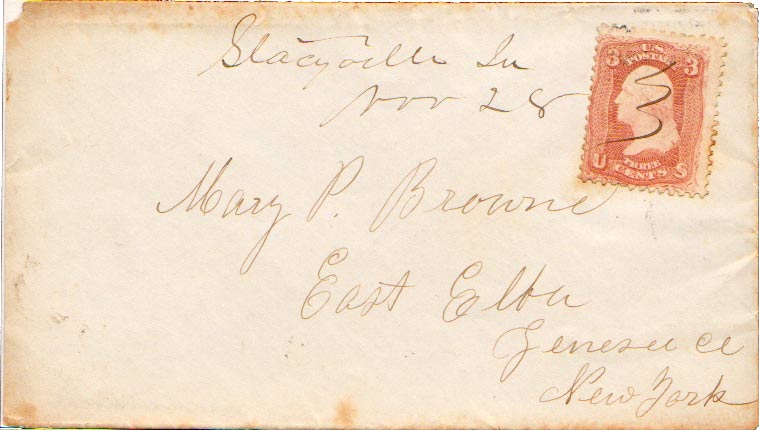 Stacyville Io
Nov 28
3 U.S. 3
POSTAGE
THREE
U CENTS S
Mary P. Browne
East Elba
Genesee co
New York